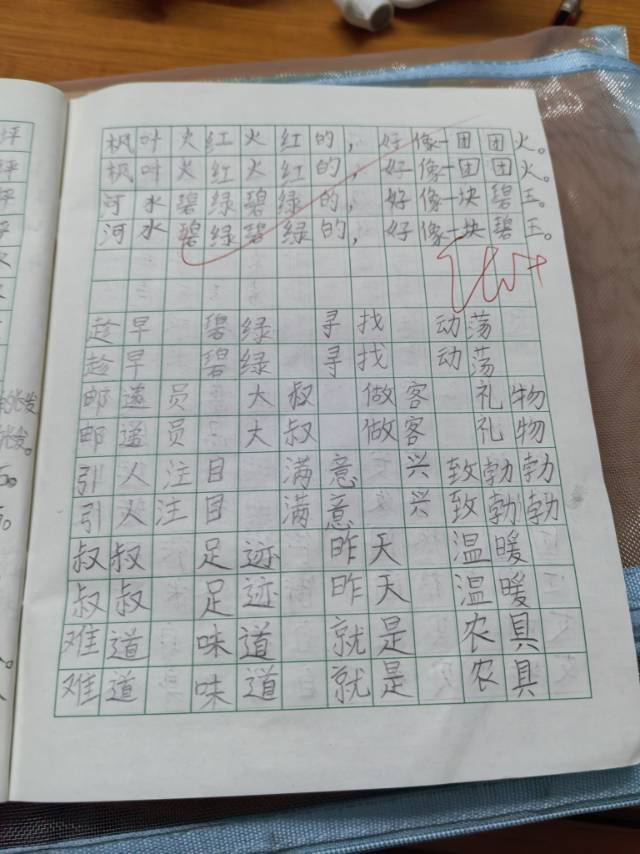 枫叶火红火红的，好像一团团火。
枫叶火红火红的，好像一团团火。
河水碧绿碧绿的，好像一块碧玉。
河水碧绿碧绿的，好像一块碧玉。
趁早 碧绿 寻找 动荡
趁早 碧绿 寻找 动荡
邮递员 大叔 做客 礼物
邮递员 大叔 做客 礼物
引人注目 满意 兴致勃勃
引人注目 满意 兴致勃勃
叔叔 足迹 昨天 温暖
叔叔 足迹 昨天 温暖
难道 味道 就是 农具
难道 味道 就是 农具